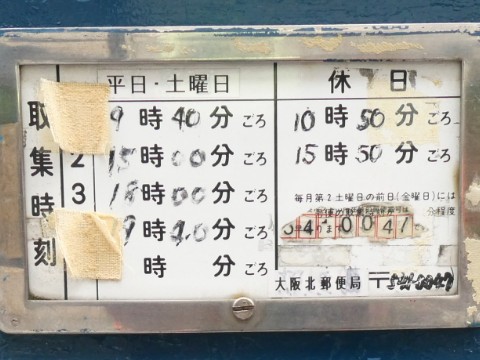 取集時刻
平日・土曜日
9時40分ごろ
2 15時00分ごろ
3 18時00分ごろ
9時40分ごろ
時 分ごろ
休日
10時50分ごろ
15時50分ごろ
毎月第2土曜日の前日(金曜日)には
分程度
0047
大阪北郵便局